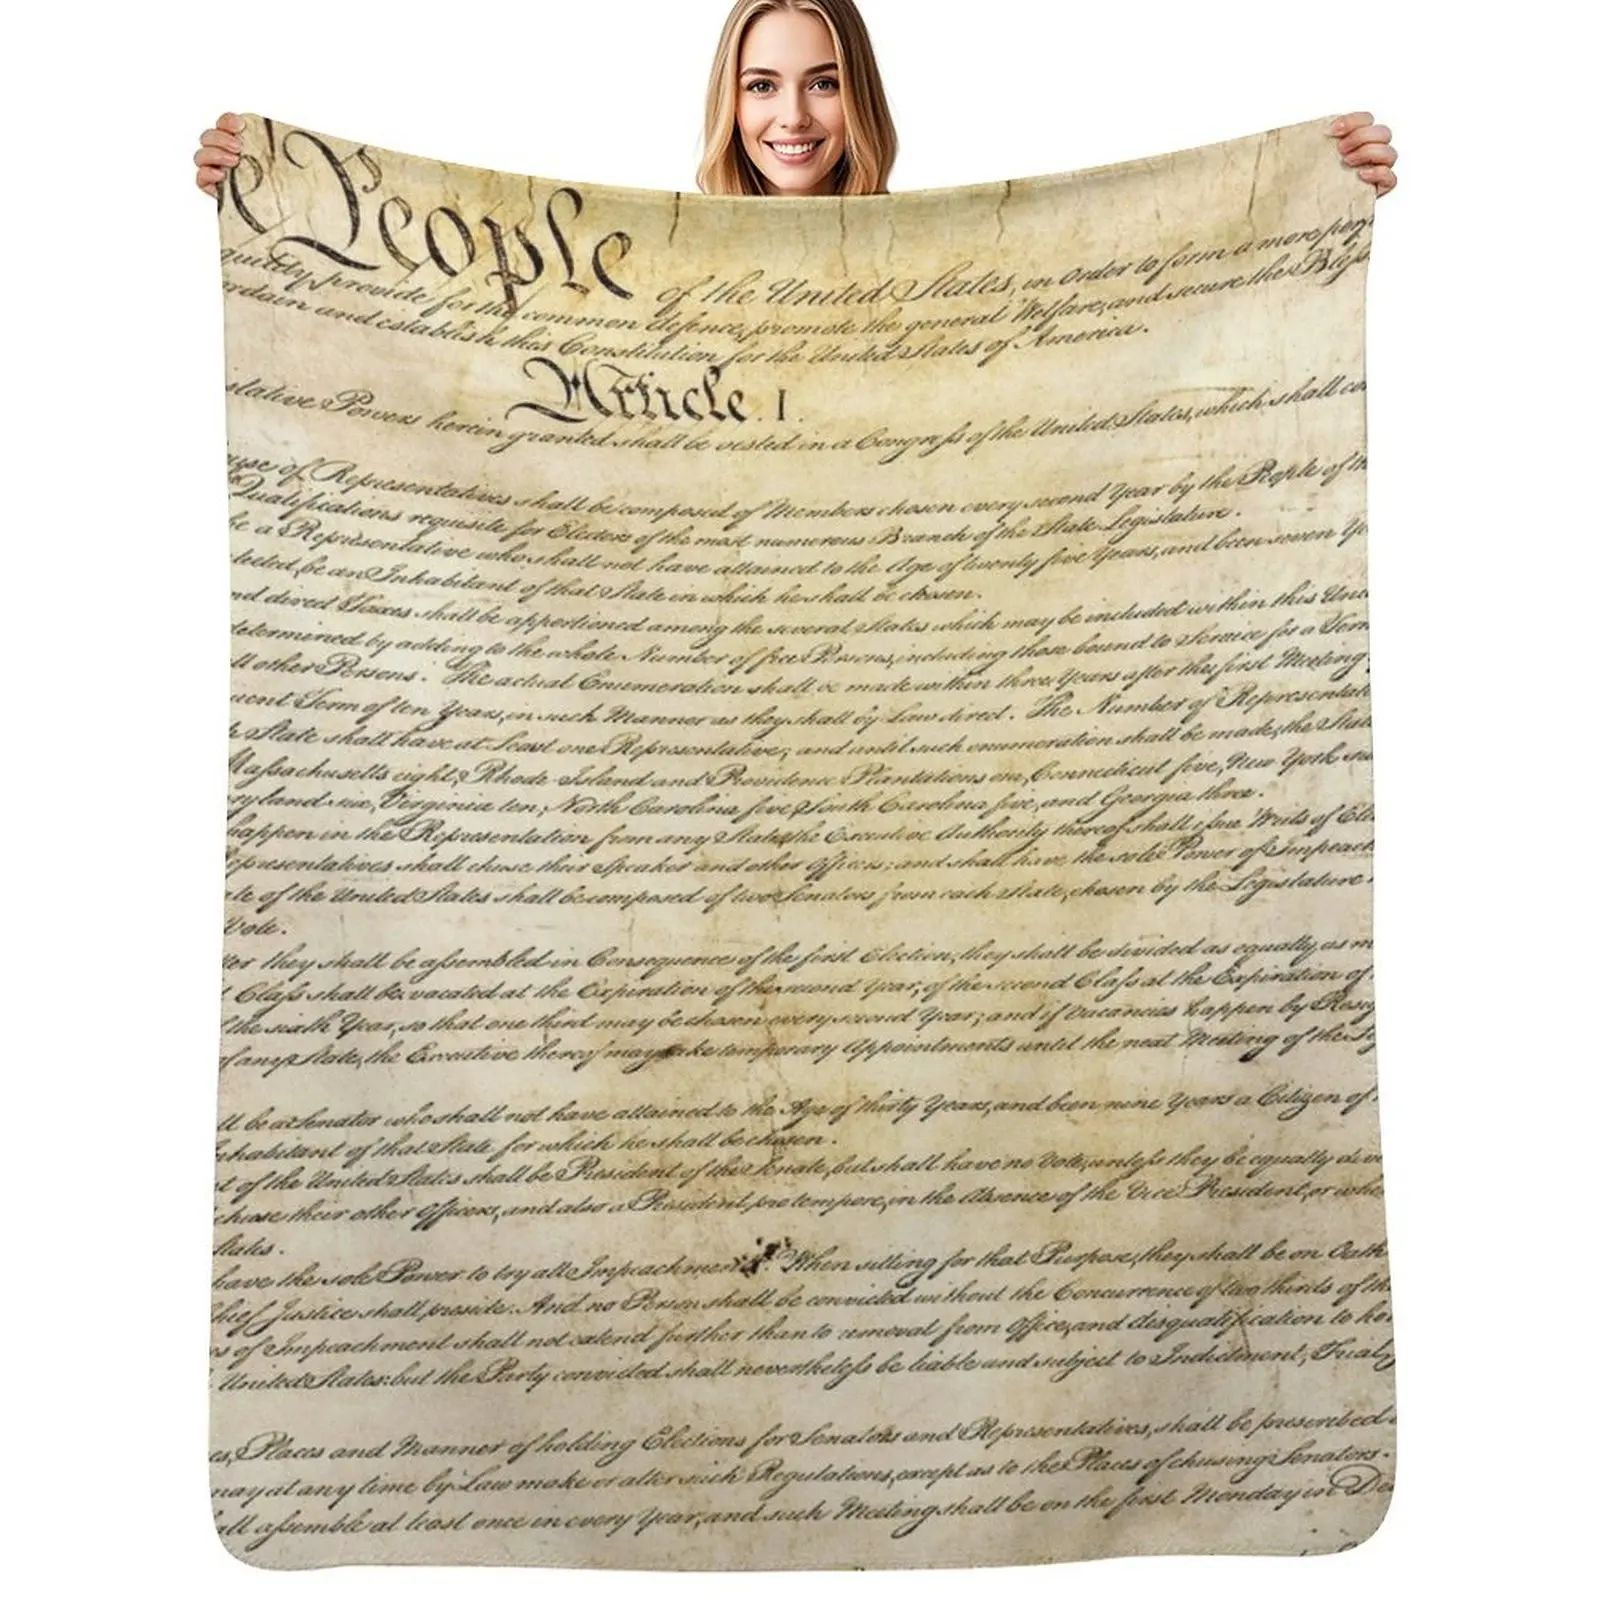 e People of the United States, in Order to form a more perf
quility, provide for the common defence, promote the general Welfare, and secure the Bless
rdain and establish this Constitution for the United States of America.
Article. I.
islative Powers herein granted shall be vested in a Congress of the United States, which shall co
use of Representatives shall be composed of Members chosen every second Year by the People of th
Qualifications requisite for Electors of the most numerous Branch of the State Legislature.
be a Representative who shall not have attained to the Age of twenty five Years, and been seven Ye
lected, be an Inhabitant of that State in which he shall be chosen.
nd direct Taxes shall be apportioned among the several States which may be included within this Unio
determined by adding to the whole Number of free Persons, including those bound to Service for a Term
ll other Persons. The actual Enumeration shall be made within three Years after the first Meeting
quent Term of ten Years, in such Manner as they shall by Law direct. The Number of Representati
h State shall have at Least one Representative; and until such enumeration shall be made, the State
Massachusetts eight, Rhode-Island and Providence Plantations one, Connecticut five, New York six
ryland six, Virginia ten, North Carolina five, South Carolina five, and Georgia three.
happen in the Representation from any State, the Executive Authority thereof shall issue Writs of Ele
Representatives shall chuse their Speaker and other Officers; and shall have the sole Power of Impeach
ate of the United States shall be composed of two Senators from each State, chosen by the Legislature
Vote.
ter they shall be assembled in Consequence of the first Election, they shall be divided as equally as m
t Class shall be vacated at the Expiration of the second Year, of the second Class at the Expiration of
f the sixth Year, so that one third may be chosen every second Year; and if Vacancies happen by Resig
of any State, the Executive thereof may make temporary Appointments until the next Meeting of the Le
ll be a Senator who shall not have attained to the Age of thirty Years, and been nine Years a Citizen of
nhabitant of that State for which he shall be chosen.
t of the United States shall be President of the Senate, but shall have no Vote, unless they be equally divi
chuse their other Officers, and also a President pro tempore, in the Absence of the Vice President, or whe
States.
have the sole Power to try all Impeachments. When sitting for that Purpose, they shall be on Oath
Chief Justice shall preside: And no Person shall be convicted without the Concurrence of two thirds of the
es of Impeachment shall not extend further than to removal from Office, and disqualification to ho
United States: but the Party convicted shall nevertheless be liable and subject to Indictment, Trial,
es, Places and Manner of holding Elections for Senators and Representatives, shall be prescribed
may at any time by Law make or alter such Regulations, except as to the Places of chusing Senators.
all assemble at least once in every Year, and such Meeting shall be on the first Monday in De